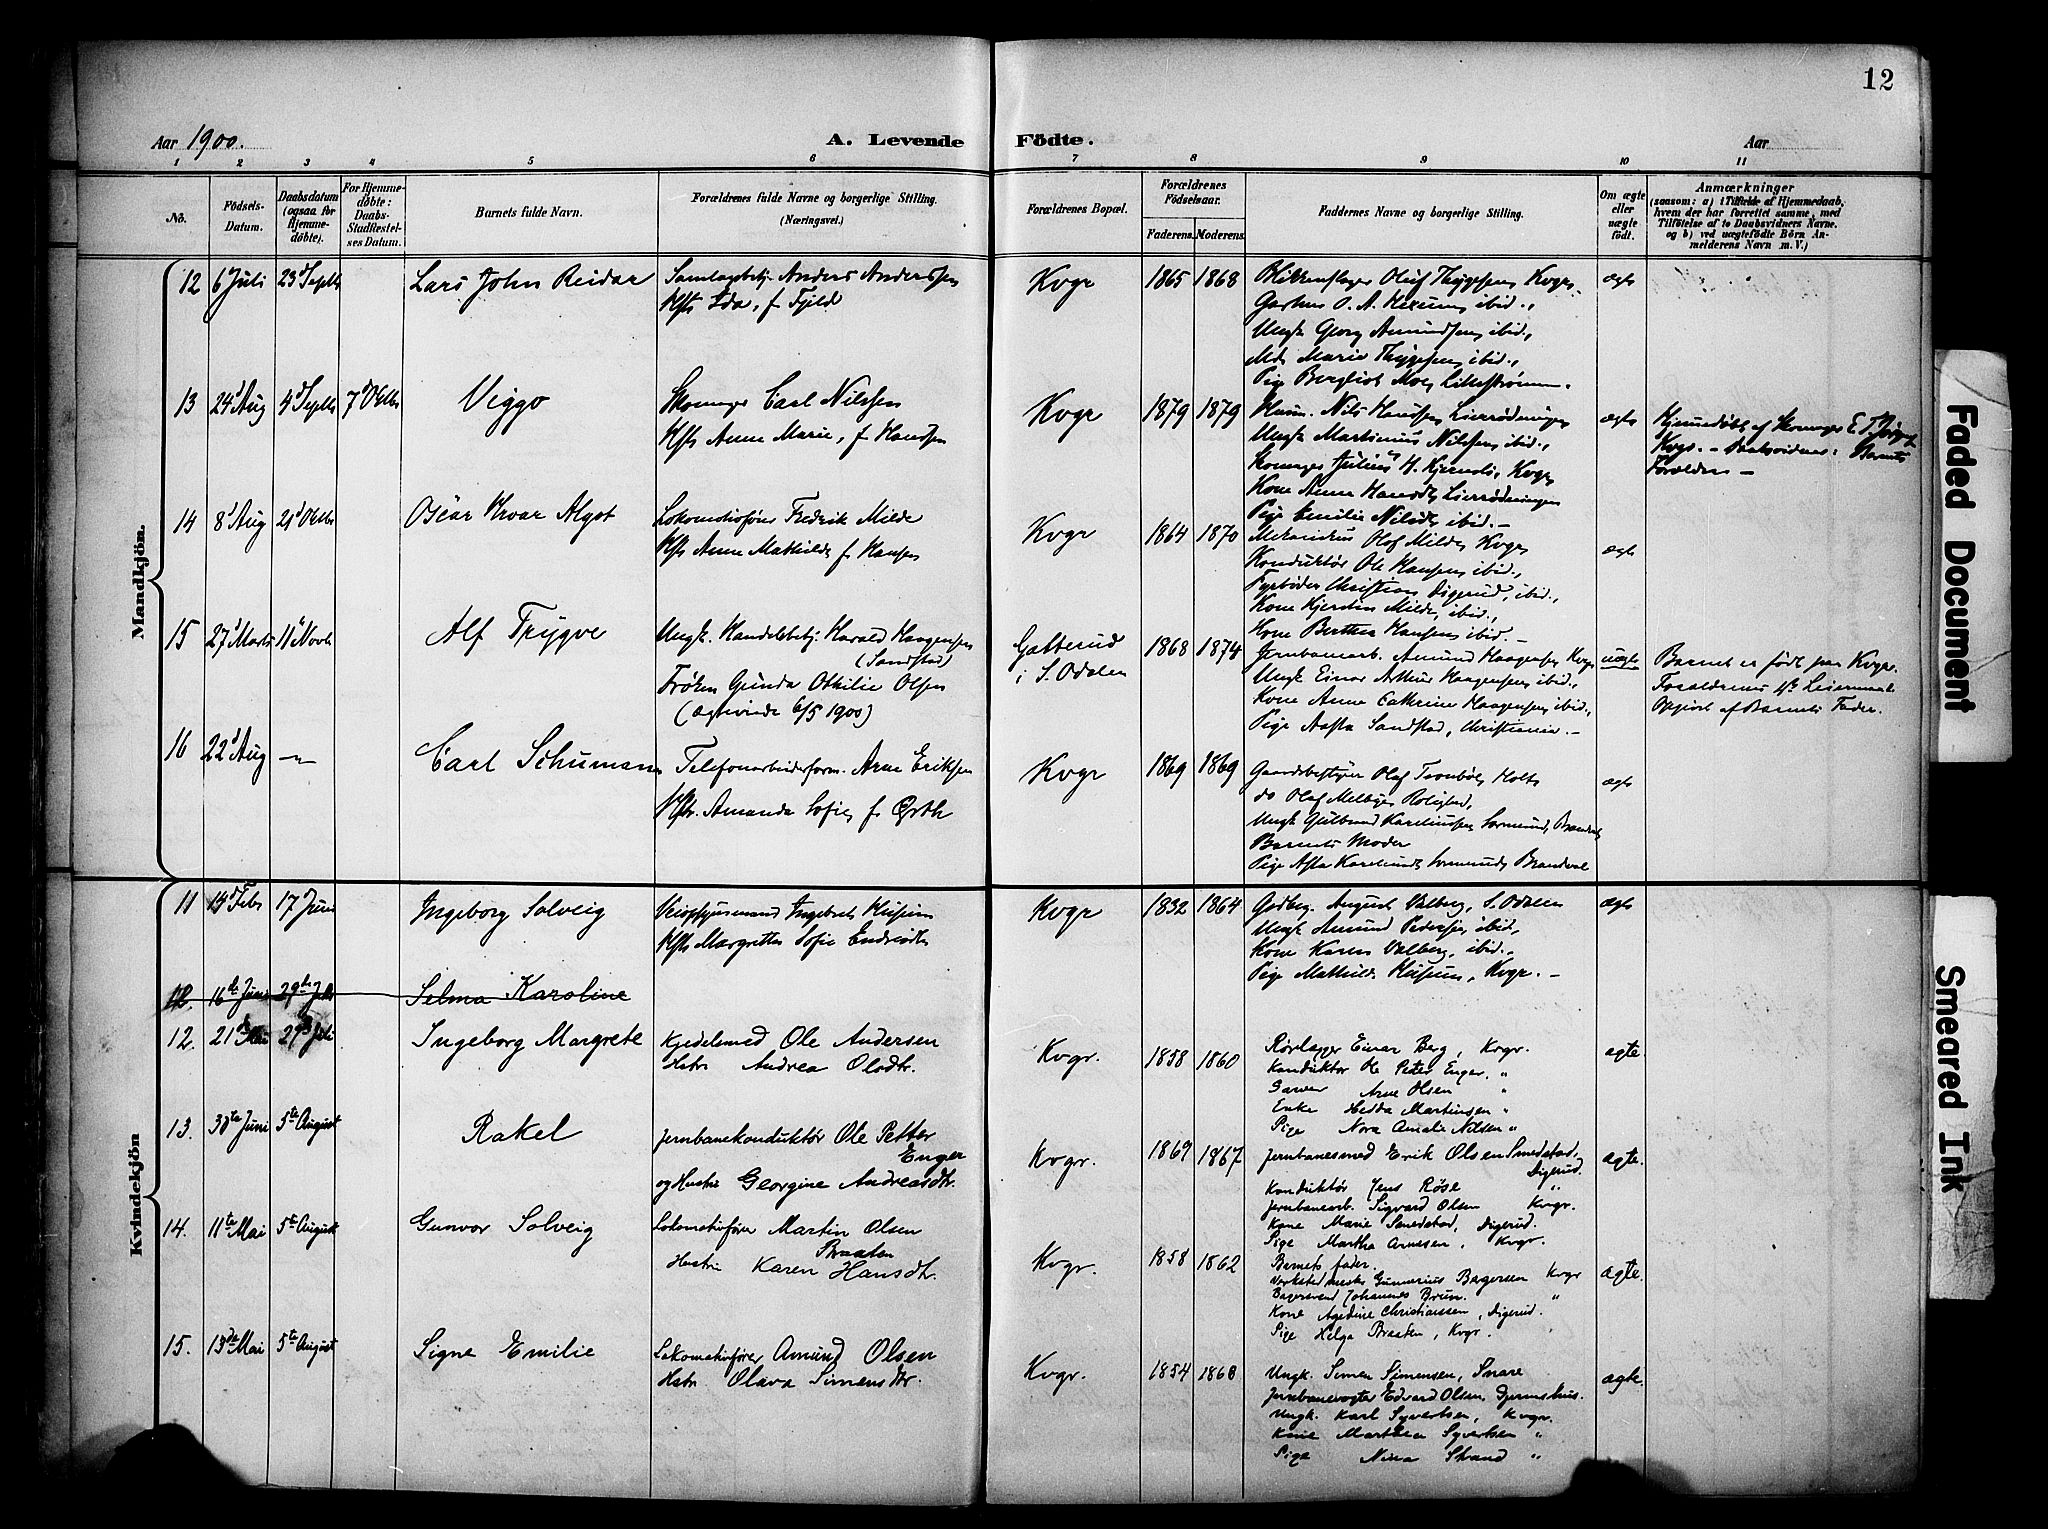 12
Aar 1900. A. Levende Födte. Aar
1 2 3 4 5 6 7 8 9 10 11
No.
Födsels-Datum.
Daabsdatum (ogsaa for Hjemmedøbte).
For Hjemmedøbte: Daabs-Stadfæstelses Datum.
Barnets fulde Navn.
Forældrenes fulde Navne og borgerlige Stilling. (Næringsvei.)
Forældrenes Bopæl.
Forældrenes Födselsaar.
Faderens. Moderens.
Faddernes Navne og borgerlige Stilling.
Om ægte eller uægte födt.
Anmærkninger
(saasom: a) i Tilfælde af Hjemmedaab,
hvem der har forrettet samme, med
Tilföielse af to Daabsvidners Navne.
og b) ved uægtefödte Börn Anmelderens Navn m. V.)
Mandkjön.
12 6 Juli 23d Septb Lars John Reidar
Anders Anderssen
Hst Ida, f. Fjeld
Kvgr 1865 1868
Oluf Thygesen Kvgr.
O. A. ibid.,
Ungk Georg Amundsen ibid.,
Md. Marie Thygesen ibid.,
Pige Bergliot Moe, Lillestrømmen.
ægte
13 24d Aug 4d Septb 7d Oktbr Viggo
Skomager Carl Nilssen
Hst Anne Marie, f. Hanssen
Kvgr 1879 1879
Husm. Nils Hanssen, Lierrødningen
Ungk Martinius Nilssen ibid.,
Skomager Julius H. Kvgr
Kone Anne Hansdt, Lierrødningen
Pige Emilie Nilsdt, ibid. –
ægte
Hjemmedøbt af Skomager
Kvgr. – Daabsvidner: Barnets
Forældre –
14 8d Aug 21d Oktbr Oscar Ivar Algot
Lokomotivfører Fredrik Milde
Hst Anne Mathilde f. Hansen
Kvgr 1864 1870
Olaf Milde, Kvgr
Konduktør Ole Hansen, ibid.,
Fyrbøder Christian Digerud, ibid.,
Kone Kjerstin Milde, ibid.,
Kone Berthea Hansen, ibid. –
ægte
15 27d Marts 11d Novb Alf Trygve
Ungk. Handelsbetj. Harald Haagensen
(Sandstad)
Frøken Gunda Othilie Olsen
(Ægteviede 6/5 1900)
Gatterud
i S. Odalen
1868 1874
Jernbanearb. Amund Haagensen Kvgr
Ungk Einar Arthur Haagensen ibid.,
Kone Anne Cathrine Haagensen ibid.,
Pige Aasta Sandstad, Christiania. –
uægte
Barnet er født paa Kvgr.
Forældrenes
Opgivet af Barnets Fader.
16 22d Aug –"– Carl Schumann
Telefonarbeiderform. Arne Eriksen
Hst. Amanda Sofie, f. Ørth
Kvgr 1869 1869
Gaardsbestyrer Olaf Holt
do Olaf Melbye, Rolighed,
Ungk Gulbrand Brandval
Barnets Moder
Pige Asta Brandval
ægte
Kvindekjön
11 14d Febr 17 Juni Ingeborg Solveig
Ingebret Husum
Hst Margrethe Sofie
Kvgr 1832 1864
Gdbrg. August Valberg, S. Odalen
Ungk Amund Pedersen ibid,
Kone Karen Valberg, ibid.,
Pige Mathilde Husum, Kvgr. –
ægte
12. 16de Juni 29de Juli Selma Karoline
12. 21de Mai 29d Juli Ingeborg Margrete
Kjedelsmed Ole Andersen
Hstr Andrea Olsdtr.
Kvgr. 1858 1860
Rørlægger Einar Berg, Kvgr.
Konduktør Ole Peter Enger, "
Garver Arne Olsen "
Enke Hedda Martinsen "
Pige Nora Amalie Nilsen "
ægte.
13. 30te Juni 5te August Rakel
Jernbanekonduktør Ole Petter
Enger
og Hustru Georgine Andreasdtr.
Kvgr. 1869 1867
Jernbanesmed Erik Olsen Smedstad,
Digerud.
Konduktør Jens Røse "
Jernbanearb. Sigvard Olsen Kvgr.
Kone Marie Smedstad, Digerud.
Pige Martha Arnesen, Kvgr.
ægte.
14. 11te Mai 5te August Gunvor Solveig
Lokomotivfører Martin Olsen
Braaten
Hustru Karen Hansdtr.
Kvgr. 1858 1862
Barnets fader.
Verkstedmester Gunnerius Børgersen Kvgr
Bagersvend Johannes Brun. "
Kone Agedine Christiansen, Digerud.
Pige Helga Braaten, Kvgr.
ægte.
15. 13de Mai 5te August Signe Emilie
Lokomotivfører Amund Olsen
Hstr. Olava Simensdtr.
Kvgr. 1854 1860
Ungk. Simen Simensen, Snare
Jernbanevogter Edvard Olsen,
Ungk. Karl Syvertsen, Kvgr.
Kone Marthea Syvertsen "
Pige Nina Strand "
ægte.
Faded Document
Smeared Ink